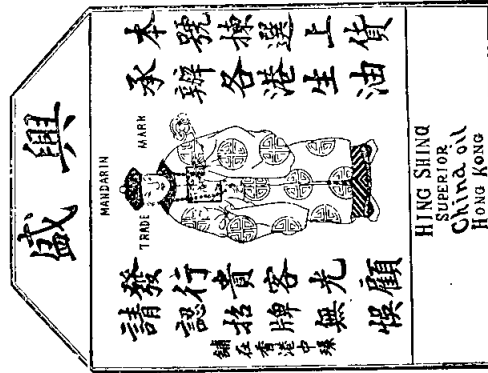 興盛
MANDARIN
TRADE MARK
本號揀選上貨
承辦各港生油
發行貴客光顧
請認招牌無悞
舖在香港中環
HING SHING
SUPERIOR
China oil
HONG KONG